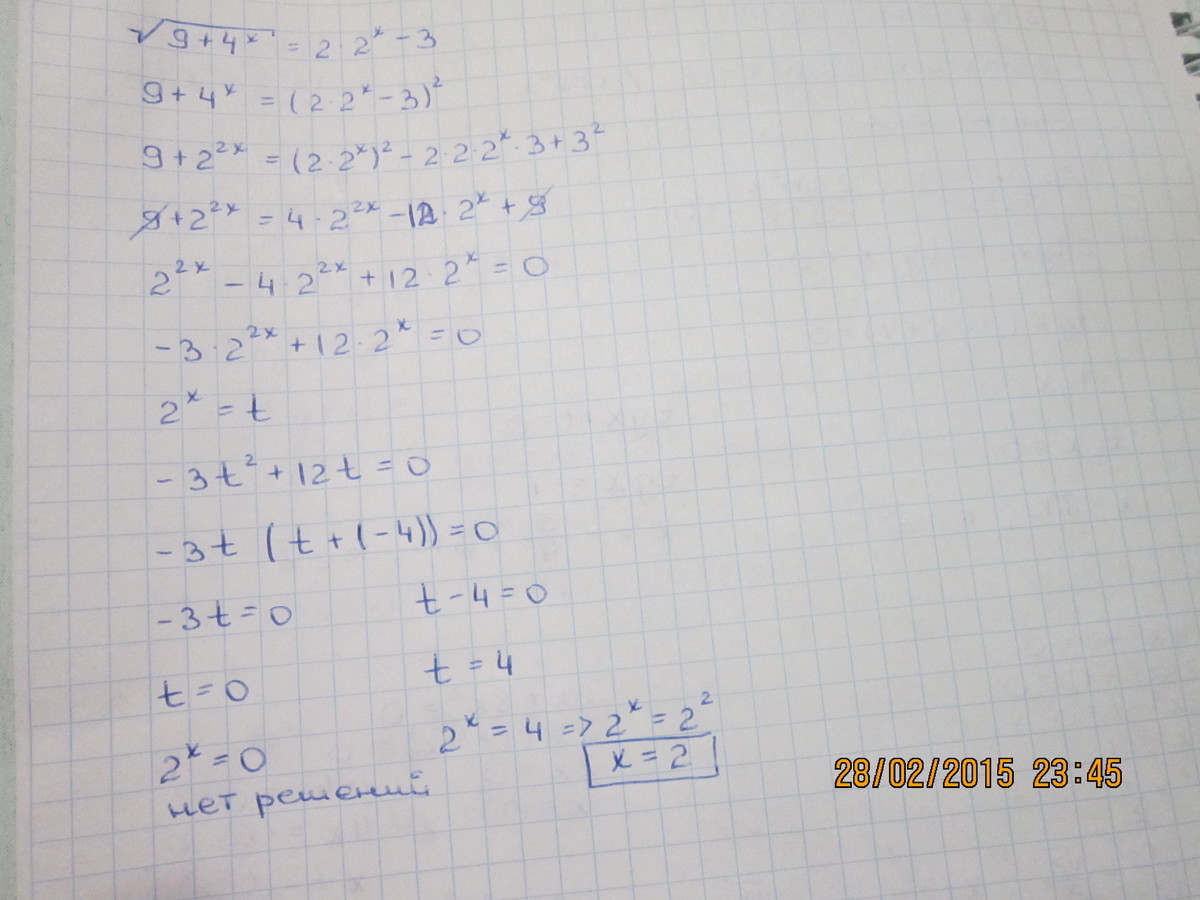 √9+4ˣ = 2·2ˣ−3
9+4ˣ = (2·2ˣ−3)²
9+2²ˣ = (2·2ˣ)²−2·2·2ˣ·3+3²
9+2²ˣ = 4·2²ˣ−12·2ˣ+9
2²ˣ−4·2²ˣ+12·2ˣ=0
−3·2²ˣ+12·2ˣ=0
2ˣ=t
−3t²+12t=0
−3t (t+(−4))=0
−3t=0 t−4=0
t=0 t=4
2ˣ=0 2ˣ=4 => 2ˣ=2²
нет решений x=2
28/02/2015 23:45